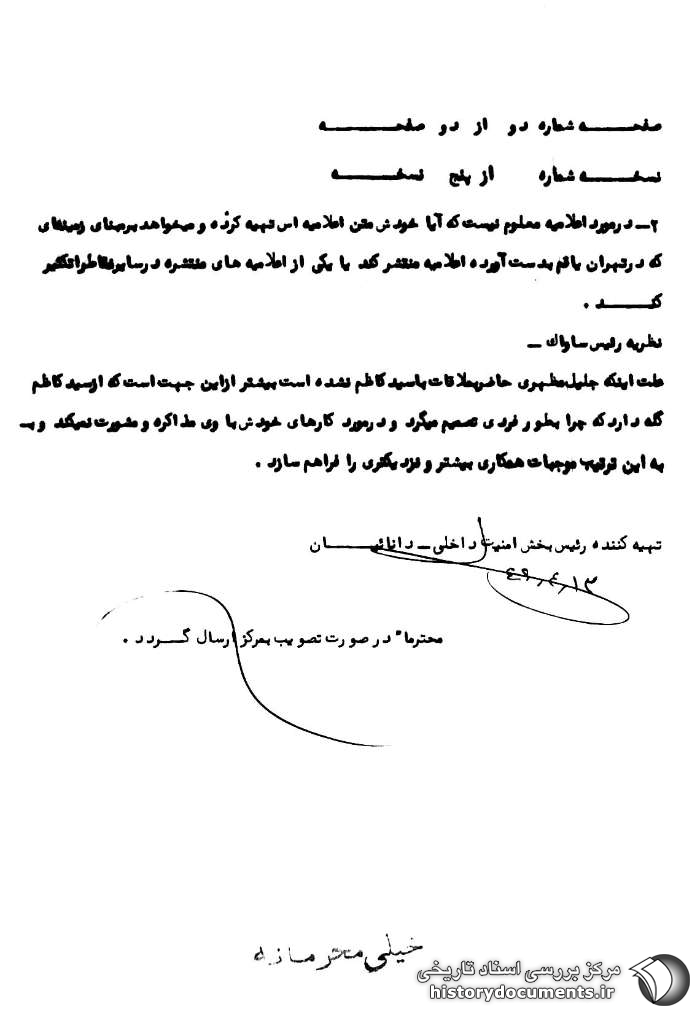 صفحــــــه شماره دو از دو صفحــــــه
نسخــــــه شماره از پنج نسخــــــه
۲ــ درمورد اعلامیه معلوم نیست که آیا خودش متن اعلامیه اس تهیه کرده و میخواهد برمبنای زمینه‌ای
که درتهران یا قم بدست آورده اعلامیه منتشر کند یا یکی از اعلامیه های منتشره درسایرنقاط راتکثیر
کنــــــد .
نظریه رئیس ساواک ــ
علت اینکه جلیل مظهری حاضربملاقات باسید کاظم نشده است بیشتر ازاین جهت است که ازسید کاظم
گله دارد که چرا بطور فردی تصمیم میگرد و درمورد کارهای خودش با وی مذاکره و مشورت نمیکند و بــ
به این ترتیب موجبات همکاری بیشتر و نزدیکتری را فراهم سازد .
تهیه کننده رئیس بخش امنیت داخلی ــ دانائیــــــان
۴۹٫۴٫۱۳
محترما" درصورت تصویب بمرکز ارسال گــــردد .
خیلی محرمانه
مرکز بررسی اسناد تاریخی
historydocuments.ir